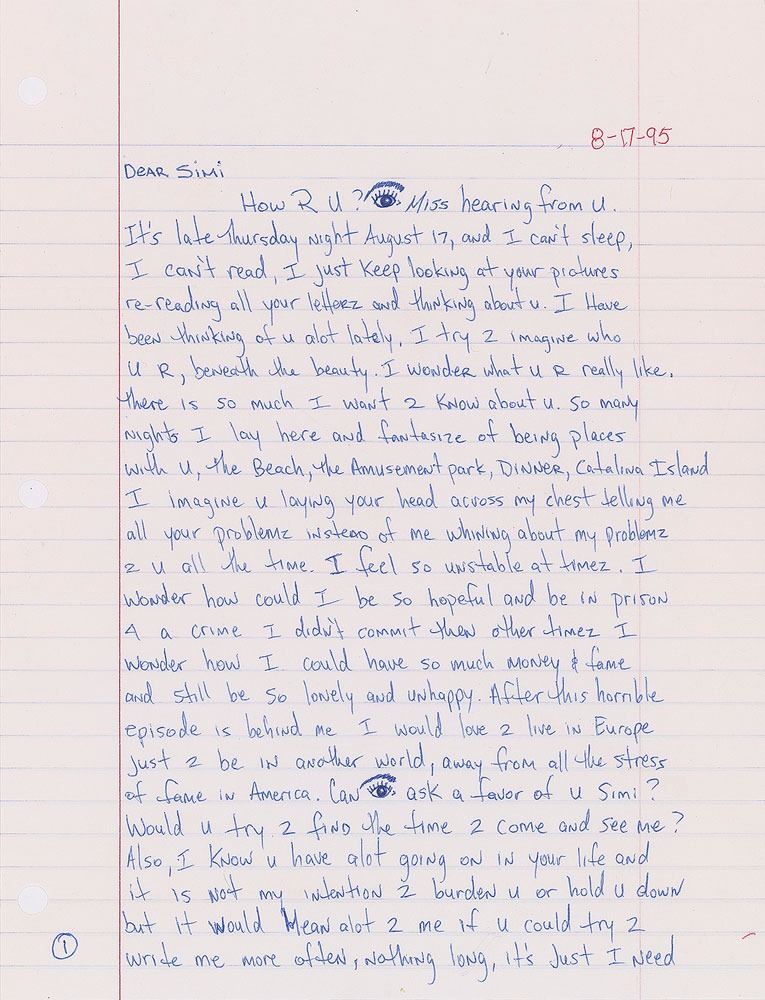 8-17-95
Dear Simi
How R U? 👁 Miss hearing from u.
It's late thursday night August 17, and I can't sleep,
I can't read, I just keep looking at your pictures
re-reading all your letterz and thinking about u. I Have
been thinking of u alot lately. I try 2 imagine who
U R, beneath the beauty. I wonder what u R really like.
there is so much I want 2 know about u. So many
nights I lay here and fantasize of being places
with U, the Beach, the Amusement park, Dinner, Catalina Island
I imagine u laying your head across my chest telling me
all your problemz instead of me whining about my problemz
2 u all the time. I feel so unstable at timez. I
wonder how could I be so hopeful and be in prison
4 a crime I didn't commit then other timez I
wonder how I could have so much money & fame
and still be so lonely and unhappy. After this horrible
episode is behind me I would love 2 live in Europe
just 2 be in another world, away from all the stress
of fame in America. Can 👁 ask a favor of u Simi?
Would u try 2 find the time 2 come and see me?
Also, I know u have alot going on in your life and
it is not my intention 2 burden u or hold u down
but it would Mean alot 2 me if u could try 2
write me more often, nothing long, it's just I need
1